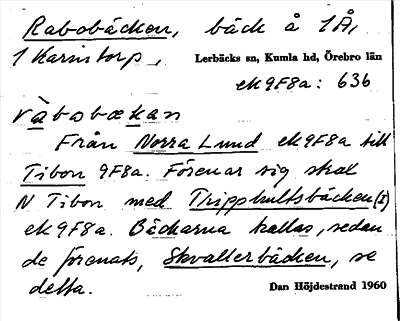 Rabobäcken, bäck å 1Å,
1 Karintorp, Lerbäcks sn, Kumla hd, Örebro län
ek 9F8a: 636
ràbobækan
Från Norra Lund ek 9F8a till
Tibon 9F8a. Förenar sig strax
N Tibon med Trippkultsbäcken (I)
ek 9F8a. Bäckarna kallas, sedan
de förenats, Skvallerbäcken, se
detta. Dan Höjdestrand 1960